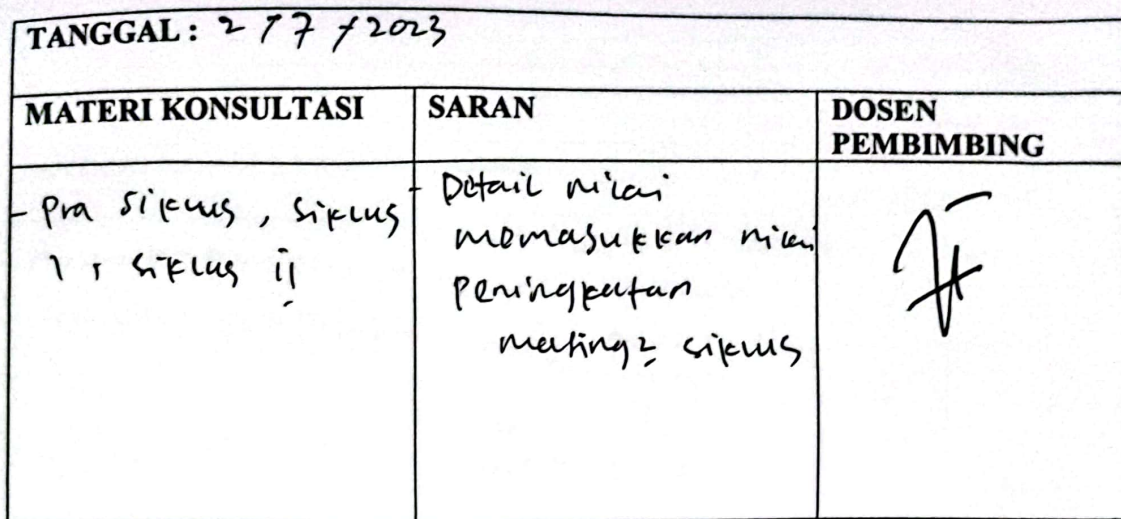 TANGGAL: 2/7/2023
MATERI KONSULTASI
SARAN
DOSEN
PEMBIMBING
- Pra siklus, siklus
1, siklus ii
- Detail nilai
memasukkan nilai
peningkatan
masing2 siklus